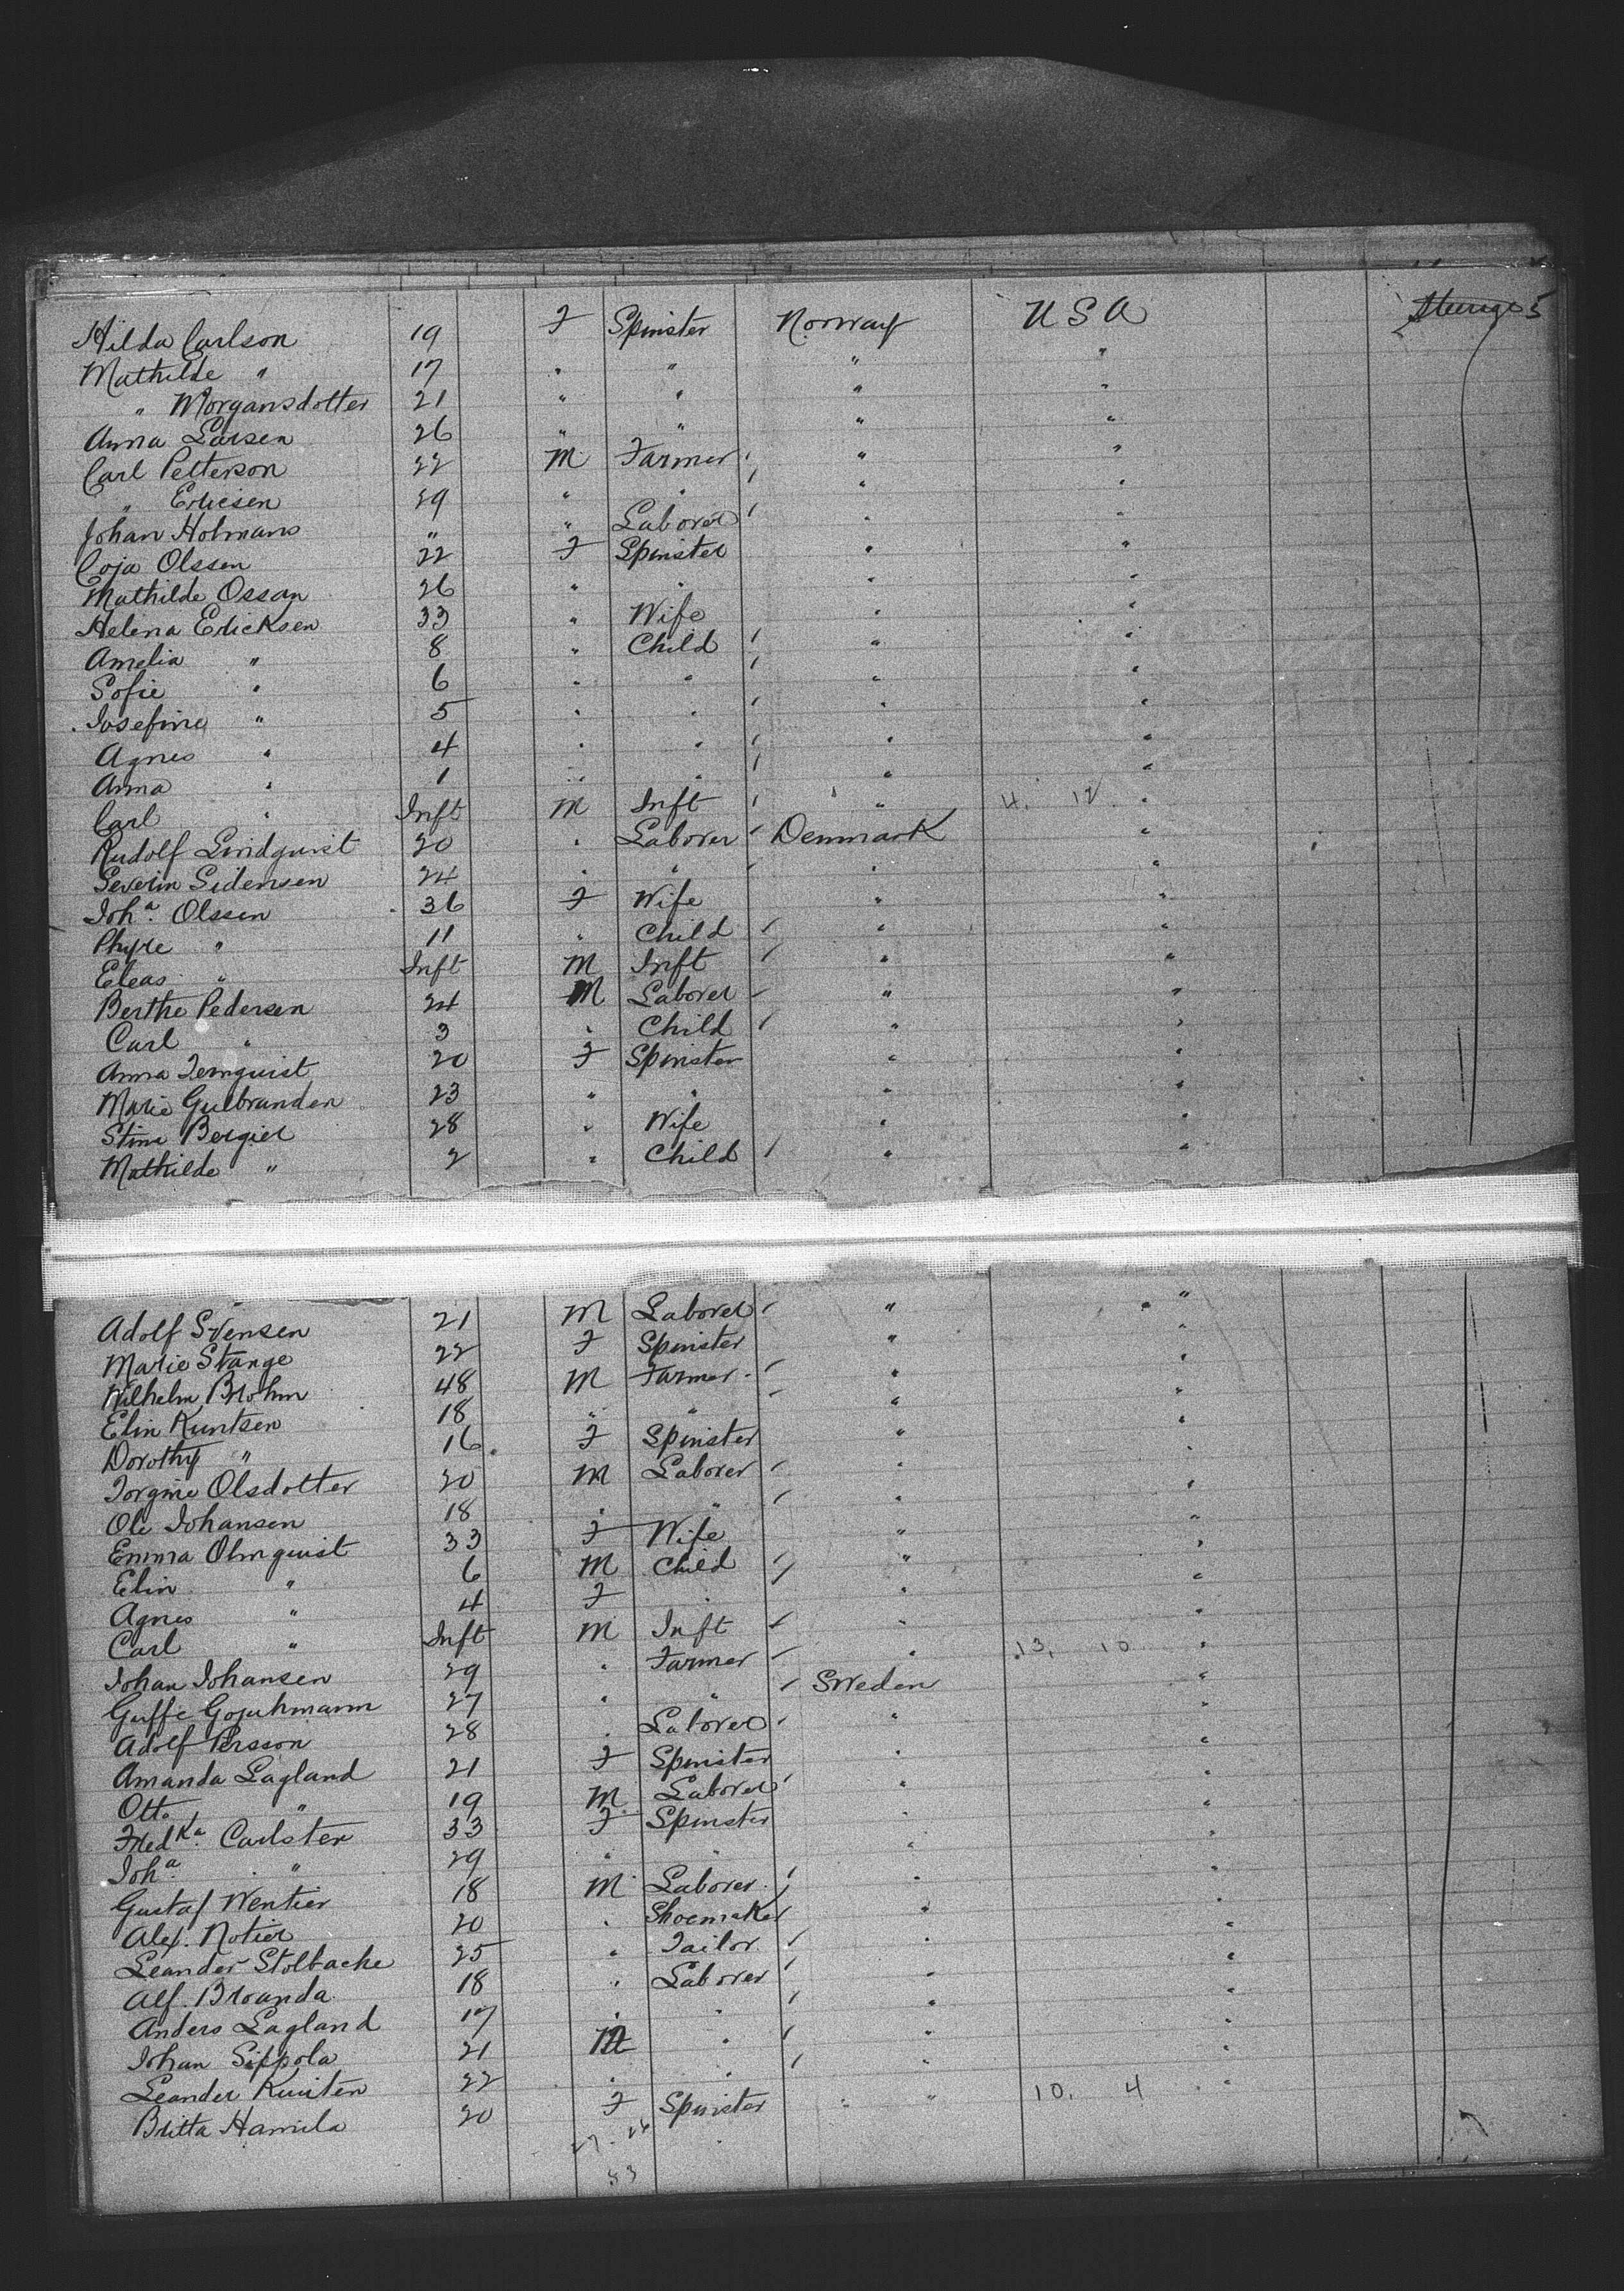 Hilda Carlson 19 F Spinster Norway USA
Mathilde " 17 " " " "
" Morgansdotter 21 " " " "
Anna Larsen 26 " " " "
Carl Petterson 22 M Farmer " "
" Ericsen 29 " " " "
Johan Holmans " " Laborer " "
Coja Olssen 22 F Spinster " "
Mathilde Ossan 26 " " " "
Helena Ericksen 33 " Wife " "
Amelia " 8 " Child " "
Sofie " 6 " " " "
Josefine " 5 " " " "
Agnes " 4 " " " "
Anna " 1 " " " "
Carl " Inft M Inft " 4. 12 "
Rudolf Lindquist 20 " Laborer Denmark "
Severin Sidensen 24 " " " "
Joha. Olssen 36 F Wife " "
Phyre " 11 " Child " "
Eleas " Inft M Inft " "
Berthe Pedersen 24 M Laborer " "
Carl " 3 " Child " "
Anna Ternquist 20 F Spinster " "
Marie Gulbranden 23 " " " "
Stina Bergier 28 " Wife " "
Mathilde " 2 " Child " "
Adolf Svensen 21 M Laborer " "
Marie Stange 22 F Spinster " "
Wilhelm Brohm 48 M Farmer " "
Elin Kuntsen 18 " " " "
Dorothy " 16 F Spinster " "
Jorgine Olsdotter 20 M Laborer " "
Ole Johansen 18 " " " "
Emma Olmquist 33 F Wife " "
Elin " 6 M Child " "
Agnes " 4 F " " "
Carl " Inft M Inft " "
Johan Johansen 29 " Farmer " 13, 10 "
Guffe Gojuhmann 27 " " Sweden "
Adolf Persson 28 " Laborer " "
Amanda Lagland 21 F Spinster " "
Otto " 19 M Laborer " "
Fredka. Carlster 33 F Spinster " "
Joha. " 29 " " " "
Gustaf Wentier 18 M Laborer " "
Alex. Notier 20 " Shoemaker " "
Leander Stolbacke 25 " Tailor " "
Alf. Broanda 18 " Laborer " "
Anders Lagland 17 " " " "
Johan Sippola 21 M " " "
Leander Kuiten 22 " " " "
Britta Hamila 20 F Spinster " " 10. 4 "